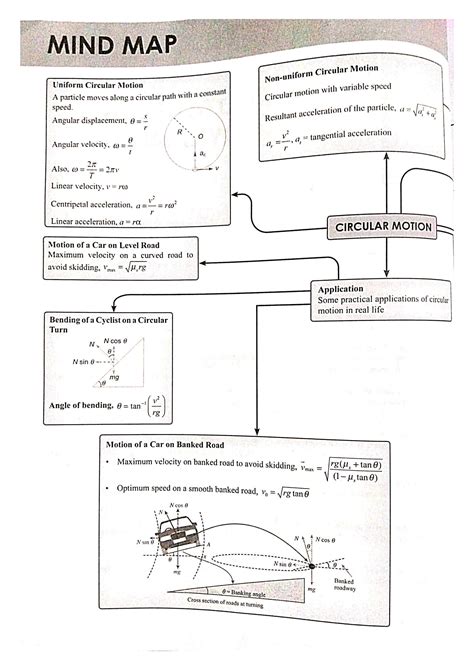 MIND MAP
Uniform Circular Motion
A particle moves along a circular path with a constant
speed.
Angular displacement, θ = s/r
Angular velocity, ω = θ/t
Also, ω = 2π/T = 2πν
Linear velocity, v = rω
Centripetal acceleration, a = v²/r = rω²
Linear acceleration, a = rα
R
O
a꜀
v
Non-uniform Circular Motion
Circular motion with variable speed
Resultant acceleration of the particle, a = √(aᵣ² + aₜ²)
aᵣ = v²/r, aₜ = tangential acceleration
CIRCULAR MOTION
Motion of a Car on Level Road
Maximum velocity on a curved road to
avoid skidding, vₘₐₓ = √(μₛrg)
Application
Some practical applications of circular
motion in real life
Bending of a Cyclist on a Circular
Turn
N
N cos θ
θ
N sin θ
mg
θ
Angle of bending, θ = tan⁻¹(v²/rg)
Motion of a Car on Banked Road
• Maximum velocity on banked road to avoid skidding, vₘₐₓ = √(rg(μₛ + tan θ)/(1 – μₛtan θ))
• Optimum speed on a smooth banked road, v₀ = √(rg tan θ)
N cos θ
N
N sin θ
h
θ
mg
θ = Banking angle
Cross section of roads at turning
N
N cos θ
θ
N sin θ
mg
Banked
roadway